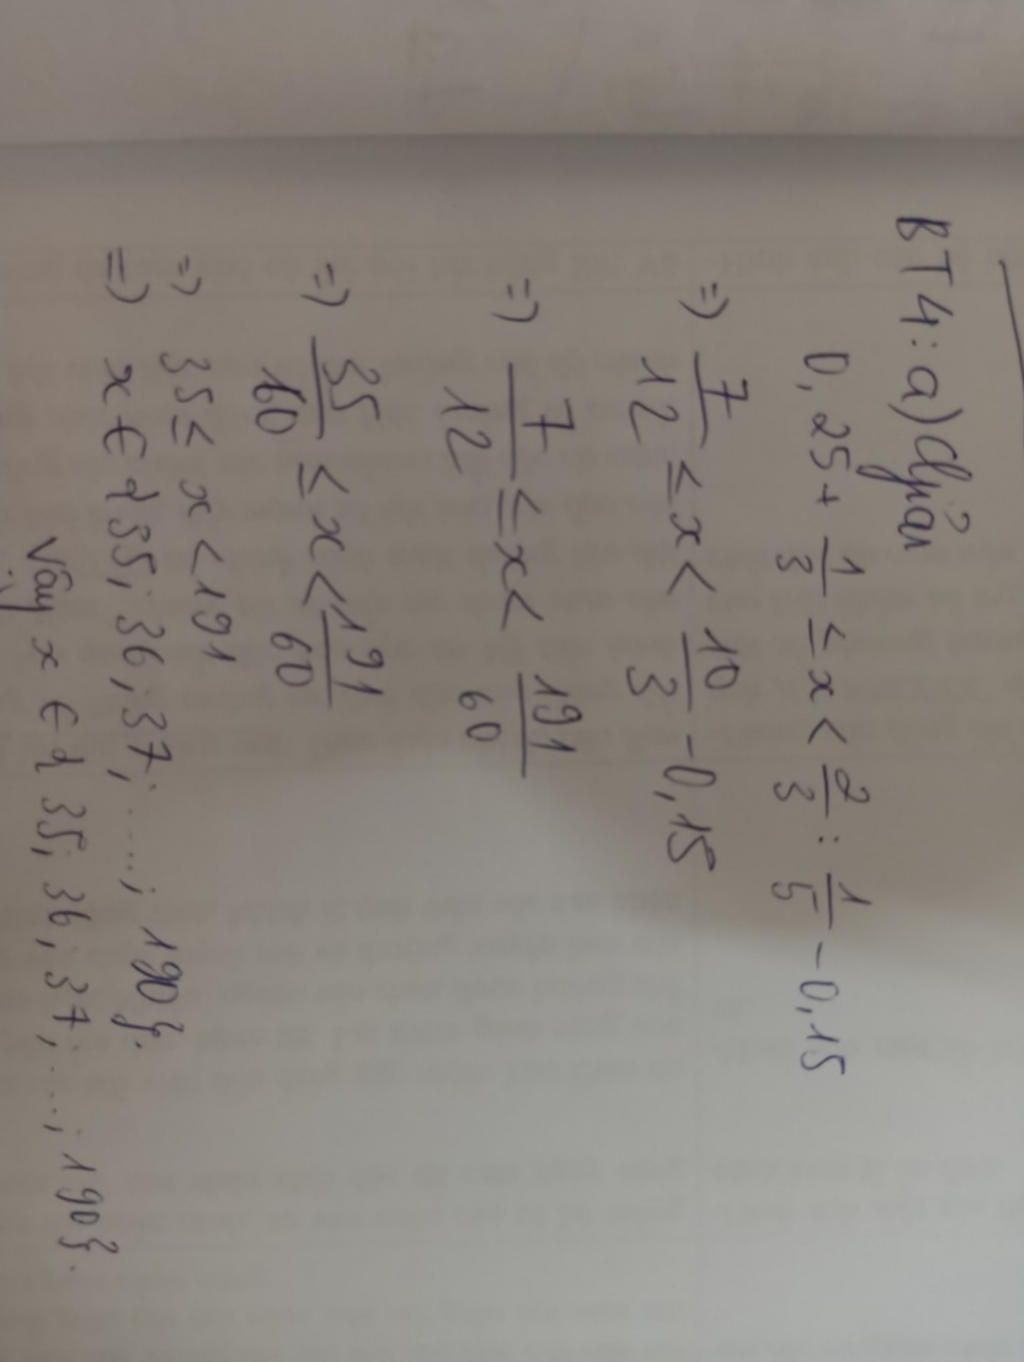 BT4: a) Giải
0,25 + 1/3 ≤ x < 2/3 : 1/5 - 0,15
=> 7/12 ≤ x < 10/3 - 0,15
=> 7/12 ≤ x < 191/60
=> 35/60 ≤ x < 191/60
=> 35 ≤ x < 191
=> x ∈ {35; 36; 37; ....; 190}.
Vậy x ∈ {35; 36; 37; ...; 190}.